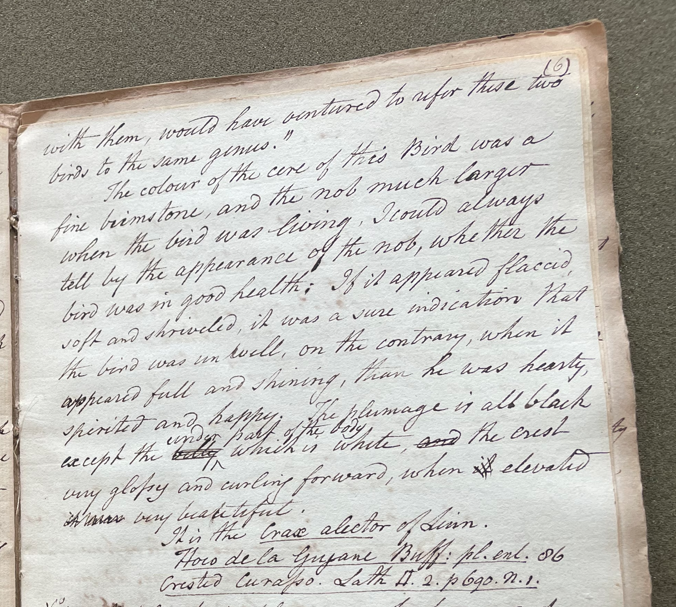 (6)
with them, would have ventured to refer these two
birds to the same genus."
The colour of the cere of this Bird was a
fine brimstone, and the nob much larger
when the bird was living, I could always
tell by the appearance of the nob, whether the
bird was in good health: If it appeared flaccid,
soft and shriveled, it was a sure indication that
the bird was unwell, on the contrary, when it
appeared full and shining, than he was hearty,
spirited and happy. The plumage is all black
under part of the body
except the belly which is white, and the crest
very glossy and curling forward, when it elevated
it was very beautiful.
It is the Crax alector of Linn.
Hoco de la Guyane Buff: pl. enl. 86
Crested Curasso. Lath II. 2. p 690. n. 1.